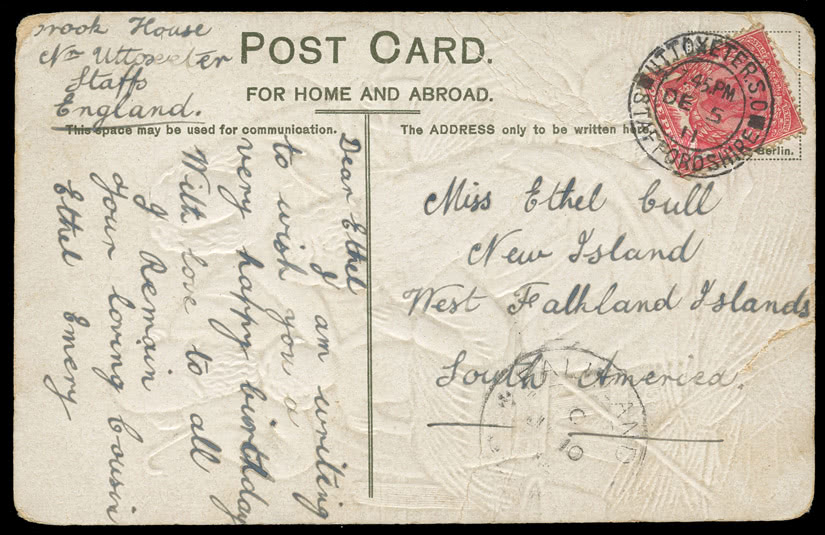 House
Nr Uttoxeter
Staffs
England.
POST CARD.
FOR HOME AND ABROAD.
This space may be used for communication.
The ADDRESS only to be written here.
Berlin.
UTTOXETER S.O
STAFFORDSHIRE
45 PM
DE 5
11
Dear Ethel
I am writing
to wish you a
very happy birthday
With love to all
I Remain
your loving Cousin
Ethel Emery
Miss Ethel Cull
New Island
West Falkland Islands
South America.